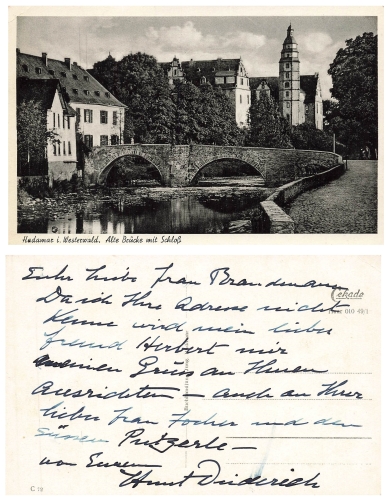 Hadamar i. Westerwald. Alte Brücke mit Schloß
liebe Frau Brandemann
Da ich Ihre Adresse nicht
kenne wird mein lieber
Freund Herbert mir
einen Gruss an Ihnen
ausrichten – auch an Ihre
liebe Frau Tochter und den
süssen Putzerle –
von Eurem
Horst Diederich
Cekade
C 19